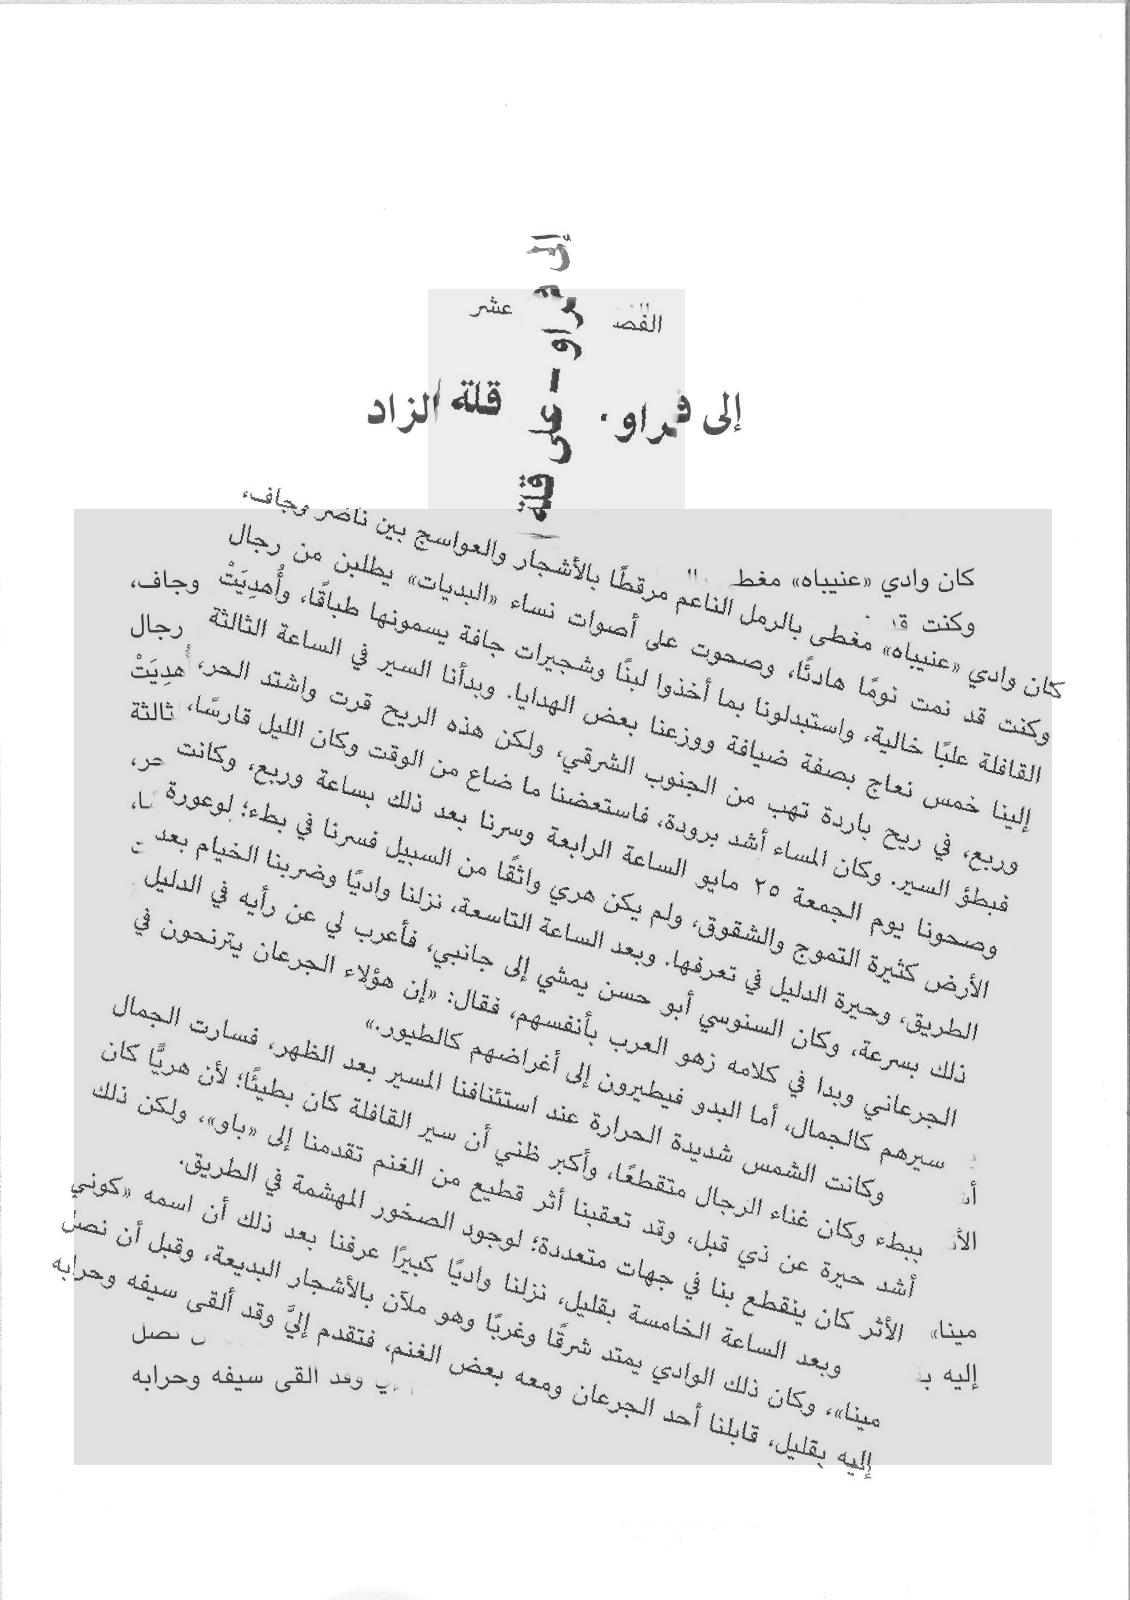 عشر
إلى فراو - على قلة
إلى فراو. قلة الزاد
كان وادي «عنيباه» مغطى بالرمل الناعم مرقطًا بالأشجار والعواسج بين ناضر وجاف،
وكنت قد نمت نومًا هادئًا، وصحوت على أصوات نساء «البديات» يطلبن من رجال
القافلة علبًا خالية، واستبدلونا بما أخذوا لبنًا وشجيرات جافة يسمونها طباقًا، وأُهدِيَتْ
إلينا خمس نعاج بصفة ضيافة ووزعنا بعض الهدايا. وبدأنا السير في الساعة الثالثة
وربع، في ريح باردة تهب من الجنوب الشرقي، ولكن هذه الريح قرت واشتد الحر،
فبطؤ السير. وكان المساء أشد برودة، فاستعضنا ما ضاع من الوقت وكان الليل قارسًا،
وصحونا يوم الجمعة ٢٥ مايو الساعة الرابعة وسرنا بعد ذلك بساعة وربع، وكانت
الأرض كثيرة التموج والشقوق، ولم يكن هري واثقًا من السبيل فسرنا في بطء؛ لوعورة
الطريق، وحيرة الدليل في تعرفها. وبعد الساعة التاسعة، نزلنا واديًا وضربنا الخيام بعد
ذلك بسرعة، وكان السنوسي أبو حسن يمشي إلى جانبي، فأعرب لي عن رأيه في الدليل
الجرعاني وبدا في كلامه زهو العرب بأنفسهم، فقال: «إن هؤلاء الجرعان يترنحون في
سيرهم كالجمال، أما البدو فيطيرون إلى أغراضهم كالطيور.»
وكانت الشمس شديدة الحرارة عند استئنافنا المسير بعد الظهر، فسارت الجمال
ببطء وكان غناء الرجال متقطعًا، وأكبر ظني أن سير القافلة كان بطيئًا؛ لأن هريًّا كان
أشد حيرة عن ذي قبل، وقد تعقبنا أثر قطيع من الغنم تقدمنا إلى «باو»، ولكن ذلك
الأثر كان ينقطع بنا في جهات متعددة؛ لوجود الصخور المهشمة في الطريق.
وبعد الساعة الخامسة بقليل، نزلنا واديًا كبيرًا عرفنا بعد ذلك أن اسمه «كوني
مينا»، وكان ذلك الوادي يمتد شرقًا وغربًا وهو ملآن بالأشجار البديعة، وقبل أن نصل
إليه بقليل، قابلنا أحد الجرعان ومعه بعض الغنم، فتقدم إليَّ وقد ألقى سيفه وحرابه